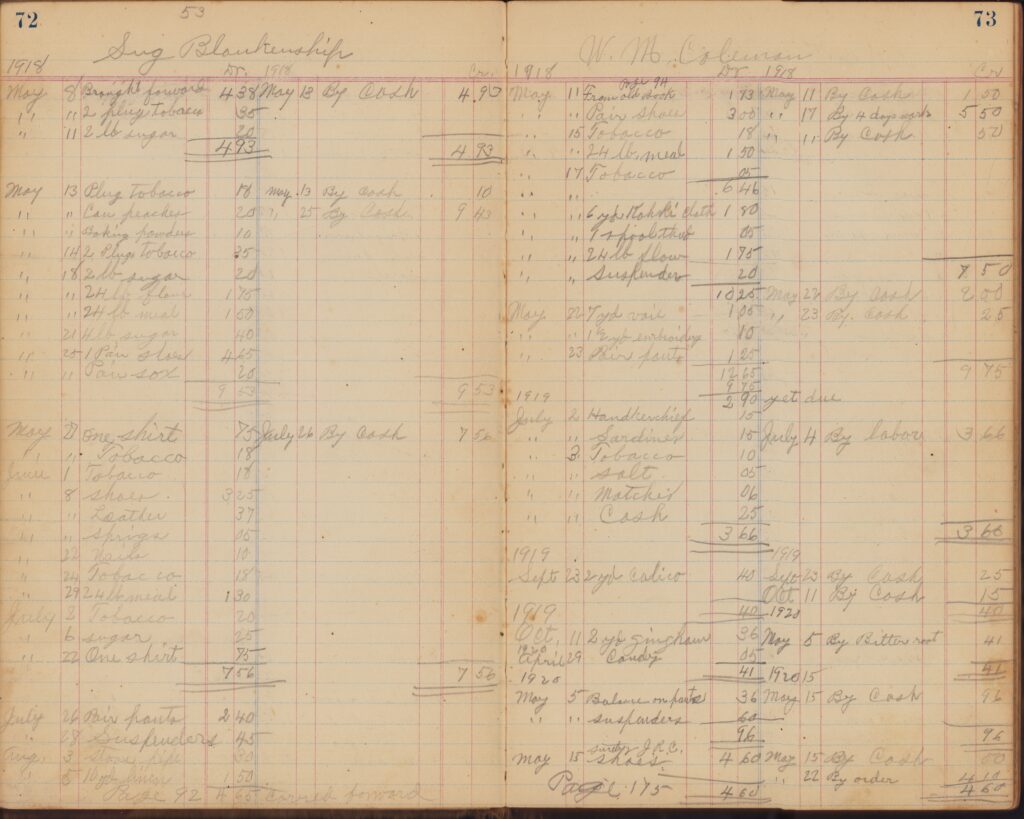 72
53
Sug Blankenship
1918 Dr. 1918 Cr.
May 8 Brought forward 4 38 May 13 By Cash 4.93
" 11 2 plug tobacco 35
" 11 2 lb sugar 20
4 93 4 93
May 13 Plug tobacco 18 May 13 By Cash 10
" " Can peaches 20 " 25 By Cash 9 43
" " Baking powders 10
" 14 2 Plugs tobacco 35
" 18 2 lb sugar 20
" " 24 lb flour 1 75
" " 24 lb meal 1 50
" 21 4 lb sugar 40
" 25 1 Pair shoes 4 65
" " Pair sox 20
9 53 9 53
May 27 One shirt 75 July 26 By Cash 7 56
" " Tobacco 18
June 1 Tobacco 18
" 8 Shoes 3 25
" " Leather 37
" " Sprigs 05
" 22 Nails 10
" 24 Tobacco 18
" 29 24 lb meal 1 30
July 2 Tobacco 20
" 6 sugar 25
" 22 One shirt 75
7 56 7 56
July 26 Pair pants 2 40
" 28 Suspenders 45
Aug 3 Stove pipe 30
" 5 10 yds linen 1 50
Page 92 4 65 carried forward
73
W. M. Coleman
1918 Dr 1918 Cr
Page 94
May 11 From old book 1 73 May 11 By Cash 1 50
" " Pair shoes 3 00 " 17 By 4 days work 5 50
" 15 Tobacco 18 " " By Cash 50
" " 24 lb meal 1 50
" 17 Tobacco 05
" " 6 46
" " 6 yd Kahki cloth 1 80
" " 1 spool thrd 05
" " 24 lb flour 1 75
" " Suspender 20 7 50
10 25 May 22 By Cash 2 00
May 22 7 yd voil 1 05 " 23 By Cash 25
" " embroidery 10
" 23 Pair pants 1 25
12 65 9 75
9 75
1919 2 90 yet due
July 2 Handkerchief 15
" " Sardines 15 July 4 By labor 3 66
" 3 Tobacco 10
" " Salt 05
" " Matches 06
" " Cash 25
3 66 3 66
1919 1919
Sept 23 2 yd Calico 40 Sep 23 By Cash 25
Oct 11 By Cash 15
1919 40 1920 40
Oct. 11 2 yd gingham 36 May 5 By Bitter root 41
1920
April 29 Candy 05
1920 41 1920 15 41
May 5 Balance on pants 36 May 15 By Cash 96
" " suspenders 60
96 96
J.R.C.
May 15 Shoes 4 60 May 15 By Cash 50
" 22 By order 4 10
Page 175 4 60 4 60